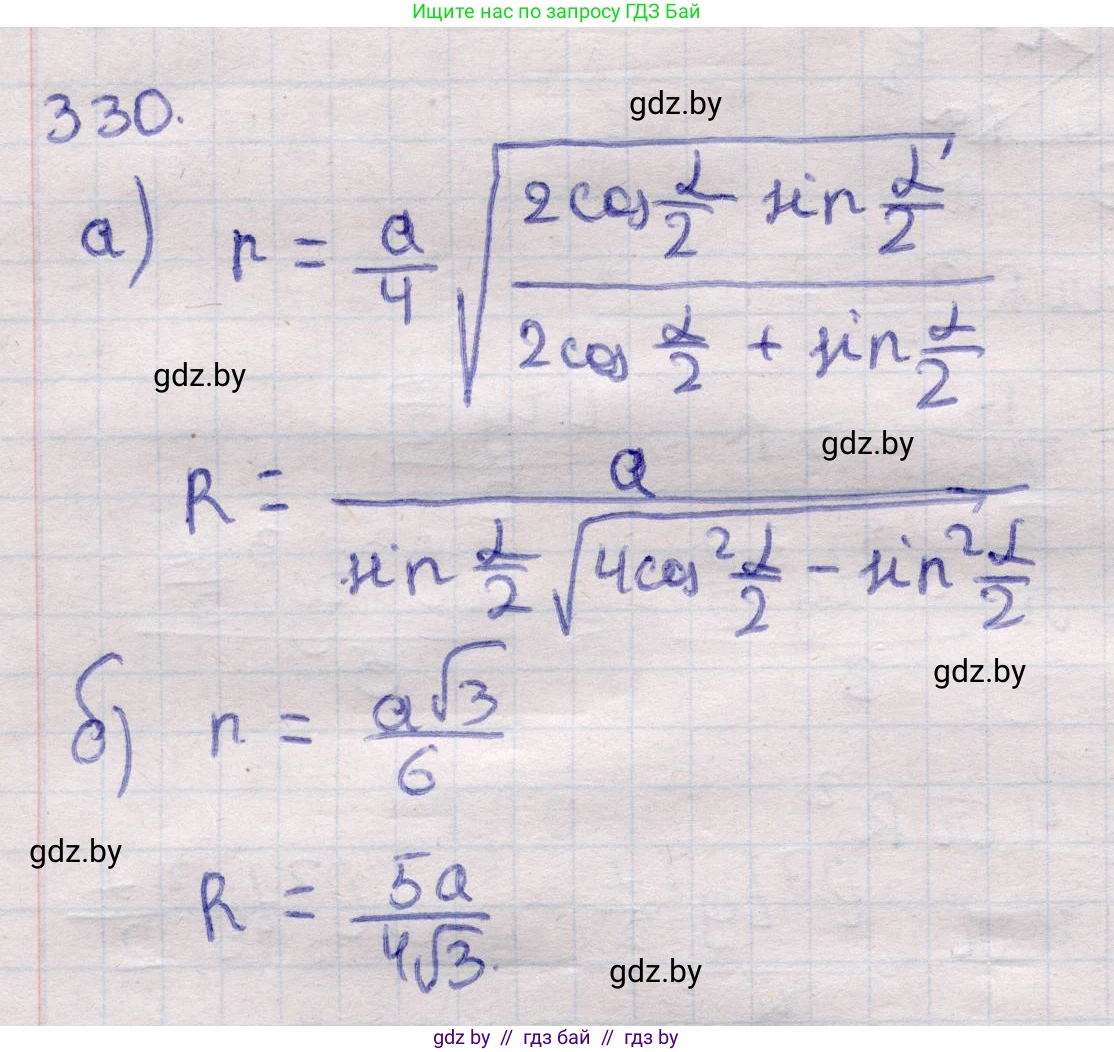 Ищите нас по запросу ГДЗ Бай
330.
gdz.by
а) r = a/4 √((2cos α/2 - sin α/2)/(2cos α/2 + sin α/2))
gdz.by
gdz.by
R = a/(sin α/2 √(4cos² α/2 - sin² α/2))
gdz.by
б) r = a√3/6
gdz.by
R = 5a/4√3.
gdz.by
gdz.by // гдз бай // гдз by